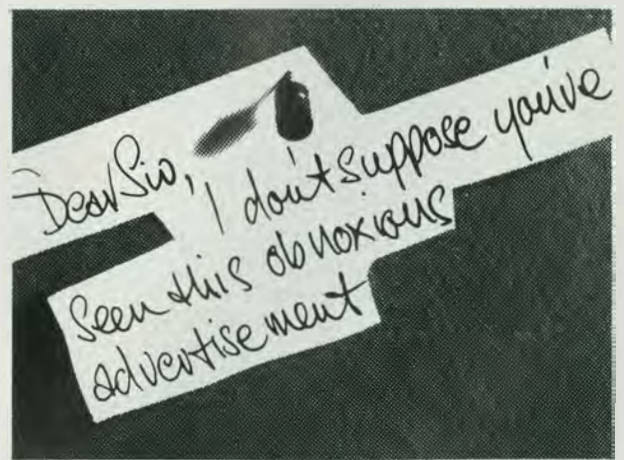 Dear Sio,
'I don't suppose you've
seen this obnoxious
advertisement